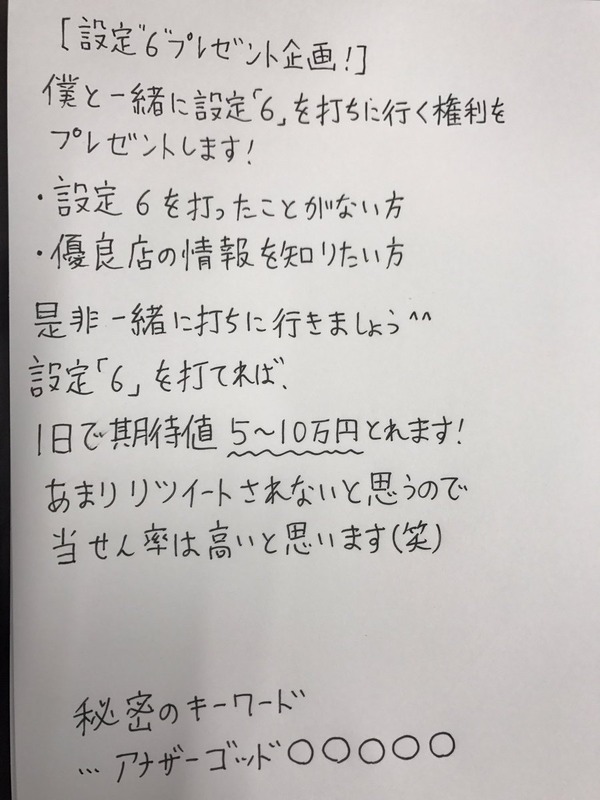 [設定"6"プレゼント企画!]
僕と一緒に設定「6」を打ちに行く権利を
プレゼントします!
・設定6を打ったことがない方
・優良店の情報を知りたい方
是非一緒に打ちに行きましょう^^
設定「6」を打てれば、
1日で期待値5〜10万円とれます!
あまりリツイートされないと思うので
当せん率は高いと思います(笑)
秘密のキーワード
…アナザーゴッド〇〇〇〇〇